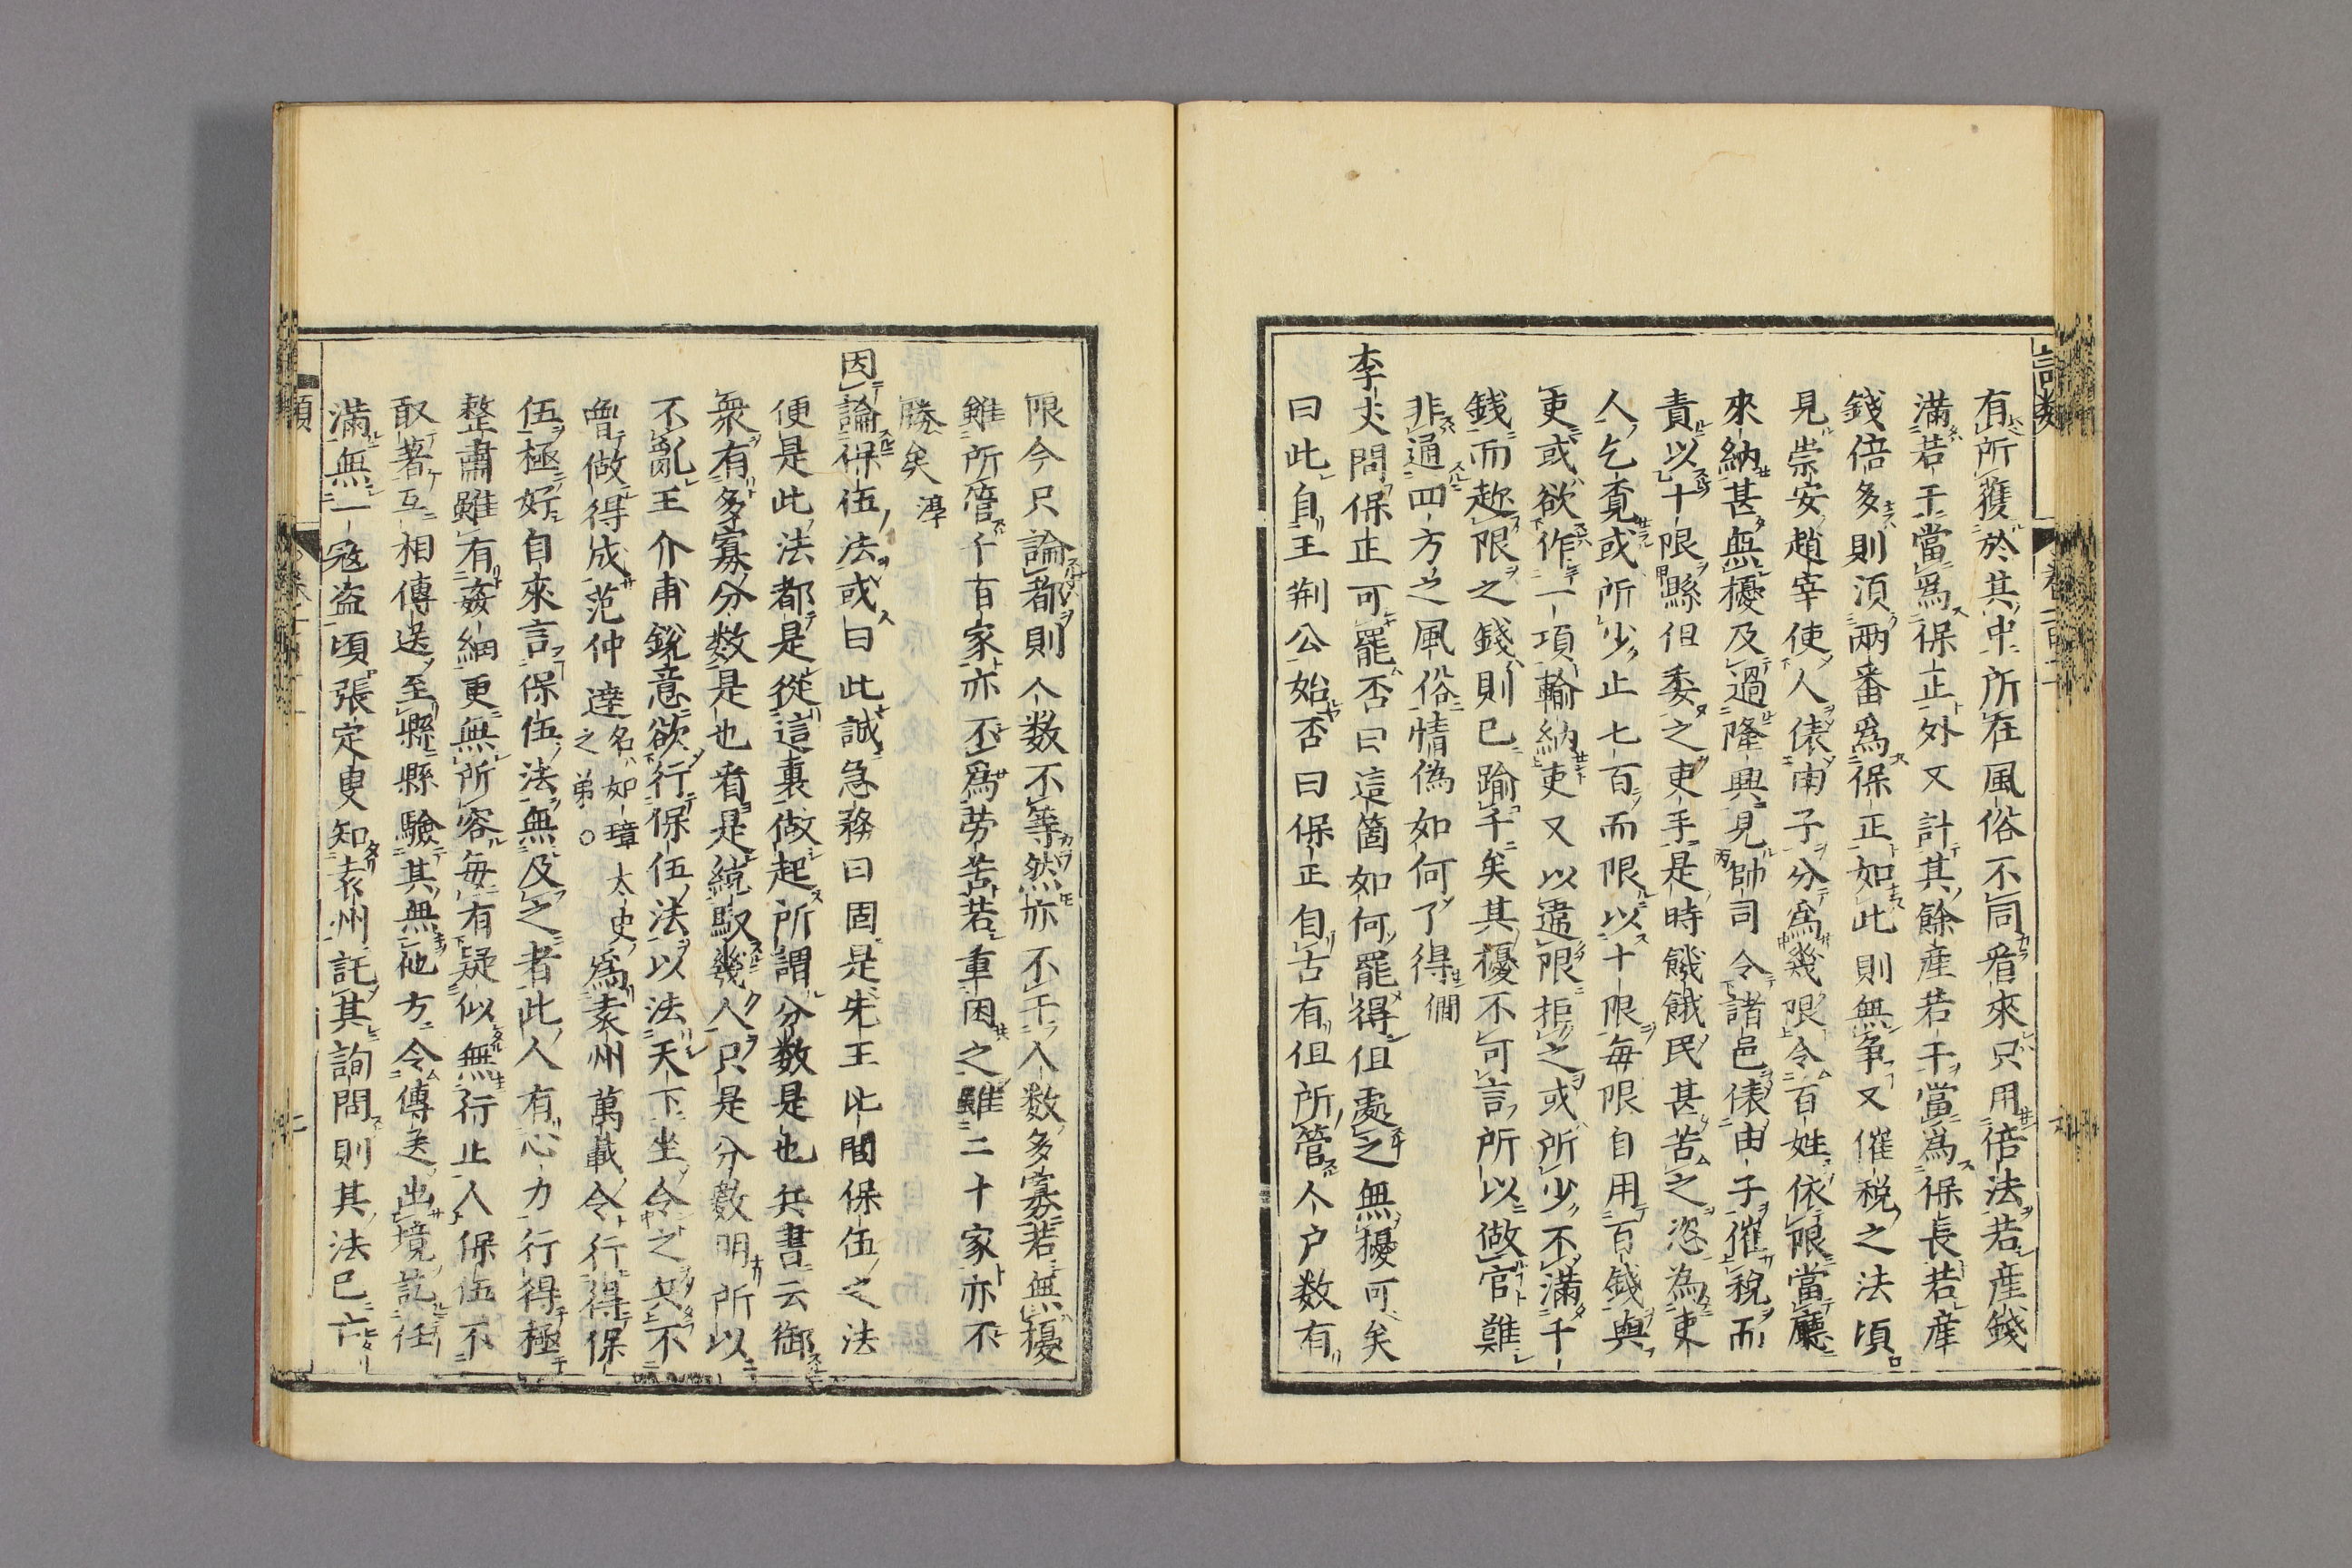 有所獲於其中所在風俗不同看來只用倍法若產錢
滿若干當爲保正外又計其餘產若干當為保長若產
錢倍多則須兩番爲保正如此則無争又催稅之法頃
見崇安趙宰使人俵南子分爲幾限令百姓依限當廳
來納甚無擾及過隆興見帥司令諸邑俵由子催稅而
責以十限縣但委之吏手是時饑餓民甚苦之恣為吏
人乞覓或所少止七百而限以十限每限自用百錢與
吏或欲作一項輸納吏又以違限拒之或所少不滿千
錢而趂限之錢則已踰千矣其擾不可言所以做官難
非通四方之風俗情偽如何了得 僩
李丈問保正可罷否曰這箇如何罷得但處之無擾可矣
曰此自王荆公始否曰保正自古有但所管人户数有
限今只論都則人数不等然亦不干人数多寡若無擾
雖所管千百家亦不爲勞苦若重困之雖二十家亦不
勝矣 淳
因論保伍法或曰此誠急務曰固是先王比閭保伍之法
便是此法都是從這裏做起所謂分数是也兵書云御
衆有多寡分数是也看是統馭幾人只是分數明所以
不亂王介甫銳意欲行保伍法以法天下坐令之兵不
曾做得成范仲達名如璋太史之弟○爲袁州萬載令行得保
伍極好自來言保伍法無及之者此人有心力行得極
整肅雖有姦細更無所容每有疑似無行止人保伍不
敢著互相傳送至縣縣驗其無他方令傳送出境訖任
滿無一宼盗頃張定叟知袁州託其詢問則其法已亡